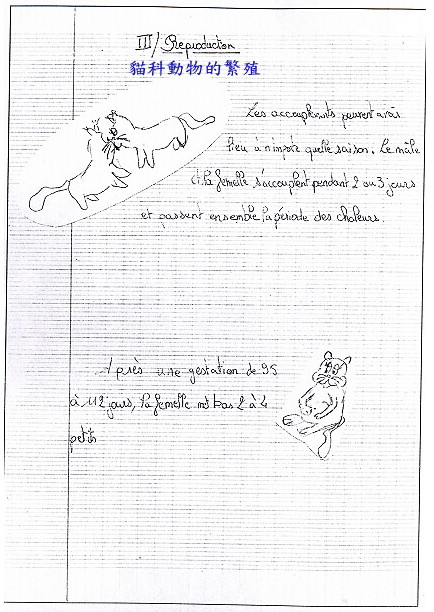 III/ Reproduction
貓科動物的繁殖
Les accouplements peuvent avoir
lieu à n'importe quelle saison. Le mâle
et la femelle s'accouplent pendant 2 ou 3 jours
et passent ensemble la période des chaleurs.
Après une gestation de 95
à 112 jours, la femelle met bas 2 à 4
petits